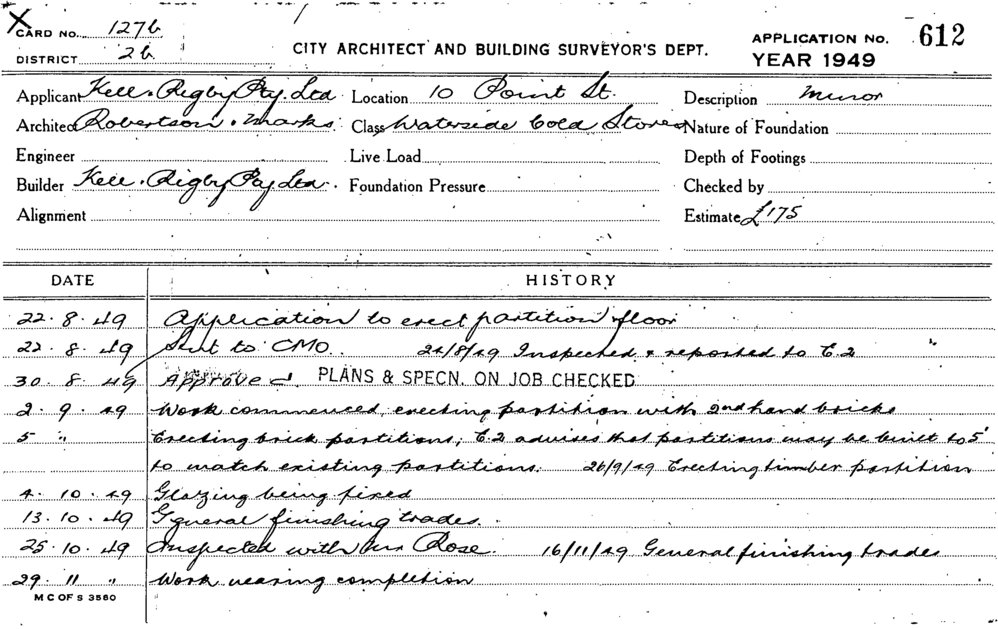 X
CARD No. 127b
DISTRICT 2b
CITY ARCHITECT AND BUILDING SURVEYOR'S DEPT.
APPLICATION No. 612
YEAR 1949
Applicant Kell & Rigby Pty. Ltd Location 10 Point St. Description Minor
Architect Robertson & Marks Class Waterside Cold Stores Nature of Foundation
Engineer Live Load Depth of Footings
Builder Kell & Rigby Pty. Ltd. Foundation Pressure Checked by
Alignment Estimate £175
DATE HISTORY
22.8.49 Application to erect partition floor
22.8.49 Sent to CMO. 24/8/49 Inspected & reported to E.2
30.8.49 Approved. PLANS & SPECN. ON JOB CHECKED
2.9.49 Work commenced, erecting partition with 2nd hand bricks
5 " Erecting brick partitions, E.2 advises that partitions may be built to 5'
to match existing partitions. 26/9/49 Erecting timber partition
4.10.49 Glazing being fixed
13.10.49 General finishing trades.
25.10.49 Inspected with Mr Rose. 16/11/49 General finishing trades
29.11 " Work nearing completion
M C OF S 3560